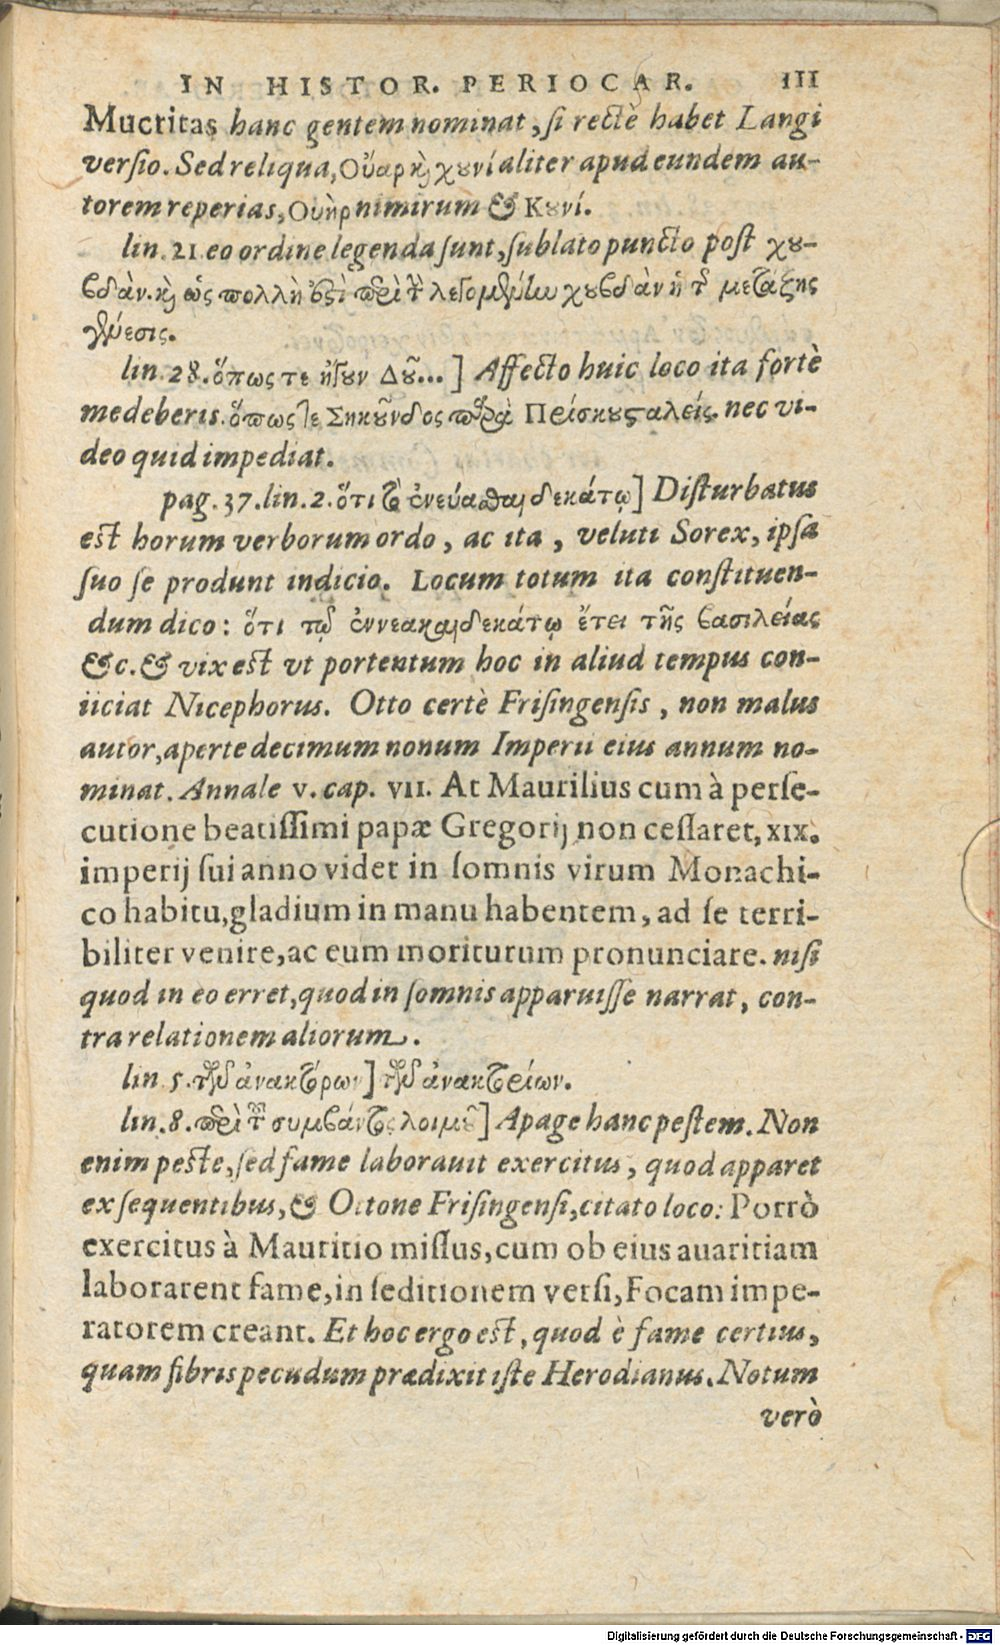 IN HISTOR. PERIOCAR. 111
Mucritas hanc gentem nominat, si rectè habet Langi
versio. Sed reliqua, Οὐαρ καὶ χουνί aliter apud eundem au-
torem reperias, Ουὴρ nimirum & Κουνί.
lin. 21. eo ordine legenda sunt, sublato puncto post χου-
βδὰν. καὶ ὡς πολλὴ ἐπὶ περὶ τὴν λεγομένην χουβδὰν ἡ τῆς μετάξης
γένεσις.
lin. 28. ὅπως τε ἤγουν Δοῦ...] Affecto huic loco ita fortè
medeberis. ὅπως τε Σηκοῦνδος παρὰ Πρίσκου σταλείς. nec vi-
deo quid impediat.
pag. 37. lin. 2. ὅτι τὸ ἐνεύασθαι δεκάτῳ] Disturbatus
est horum verborum ordo, ac ita, veluti Sorex, ipsa
suo se produnt indicio. Locum totum ita constituen-
dum dico: ὅτι τῷ ἐννεακαιδεκάτῳ ἔτει τῆς βασιλείας
&c. & vix est vt portentum hoc in aliud tempus con-
iiciat Nicephorus. Otto certè Frisingensis, non malus
autor, aperte decimum nonum Imperii eius annum no-
minat. Annale v. cap. VII. At Maurilius cum à perse-
cutione beatissimi papæ Gregorij non cessaret, XIX.
imperij sui anno videt in somnis virum Monachi-
co habitu, gladium in manu habentem, ad se terri-
biliter venire, ac eum moriturum pronunciare. nisi
quod in eo erret, quod in somnis apparuisse narrat, con-
tra relationem aliorum.
lin. 5. τῶν ἀνακτόρων] τῶν ἀνακτορίων.
lin. 8. περὶ τοῦ συμβάντος λοιμοῦ] Apage hanc pestem. Non
enim peste, sed fame laborauit exercitus, quod apparet
ex sequentibus, & Ottone Frisingensi, citato loco: Porrò
exercitus à Mauritio missus, cum ob eius auaritiam
laborarent fame, in seditionem versi, Focam impe-
ratorem creant. Et hoc ergo est, quod è fame certius,
quam fibris pecudum prædixit iste Herodianus. Notum
verò
Digitalisierung gefördert durch die Deutsche Forschungsgemeinschaft - DFG